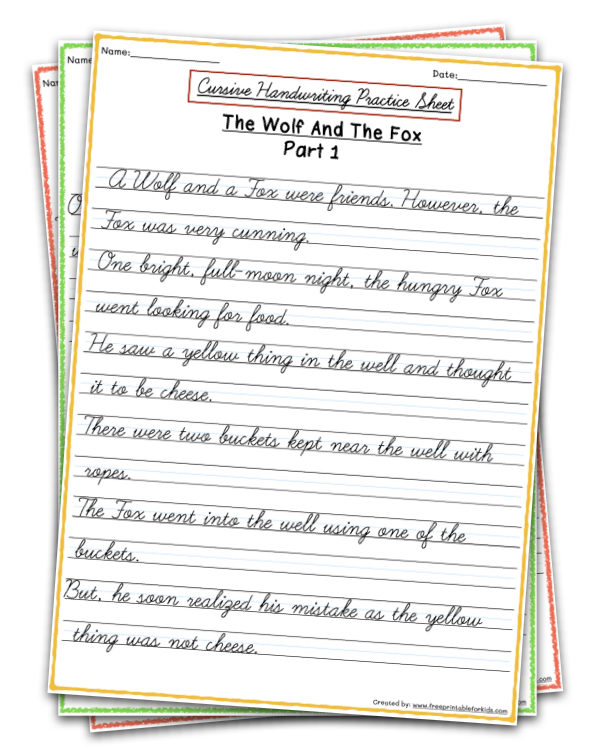 Name:
Date:
Cursive Handwriting Practice Sheet
The Wolf And The Fox
Part 1
A Wolf and a Fox were friends. However, the
Fox was very cunning.
One bright, full-moon night, the hungry Fox
went looking for food.
He saw a yellow thing in the well and thought
it to be cheese.
There were two buckets kept near the well with
ropes.
The Fox went into the well using one of the
buckets.
But, he soon realized his mistake as the yellow
thing was not cheese.
Created by: www.freeprintableforkids.com